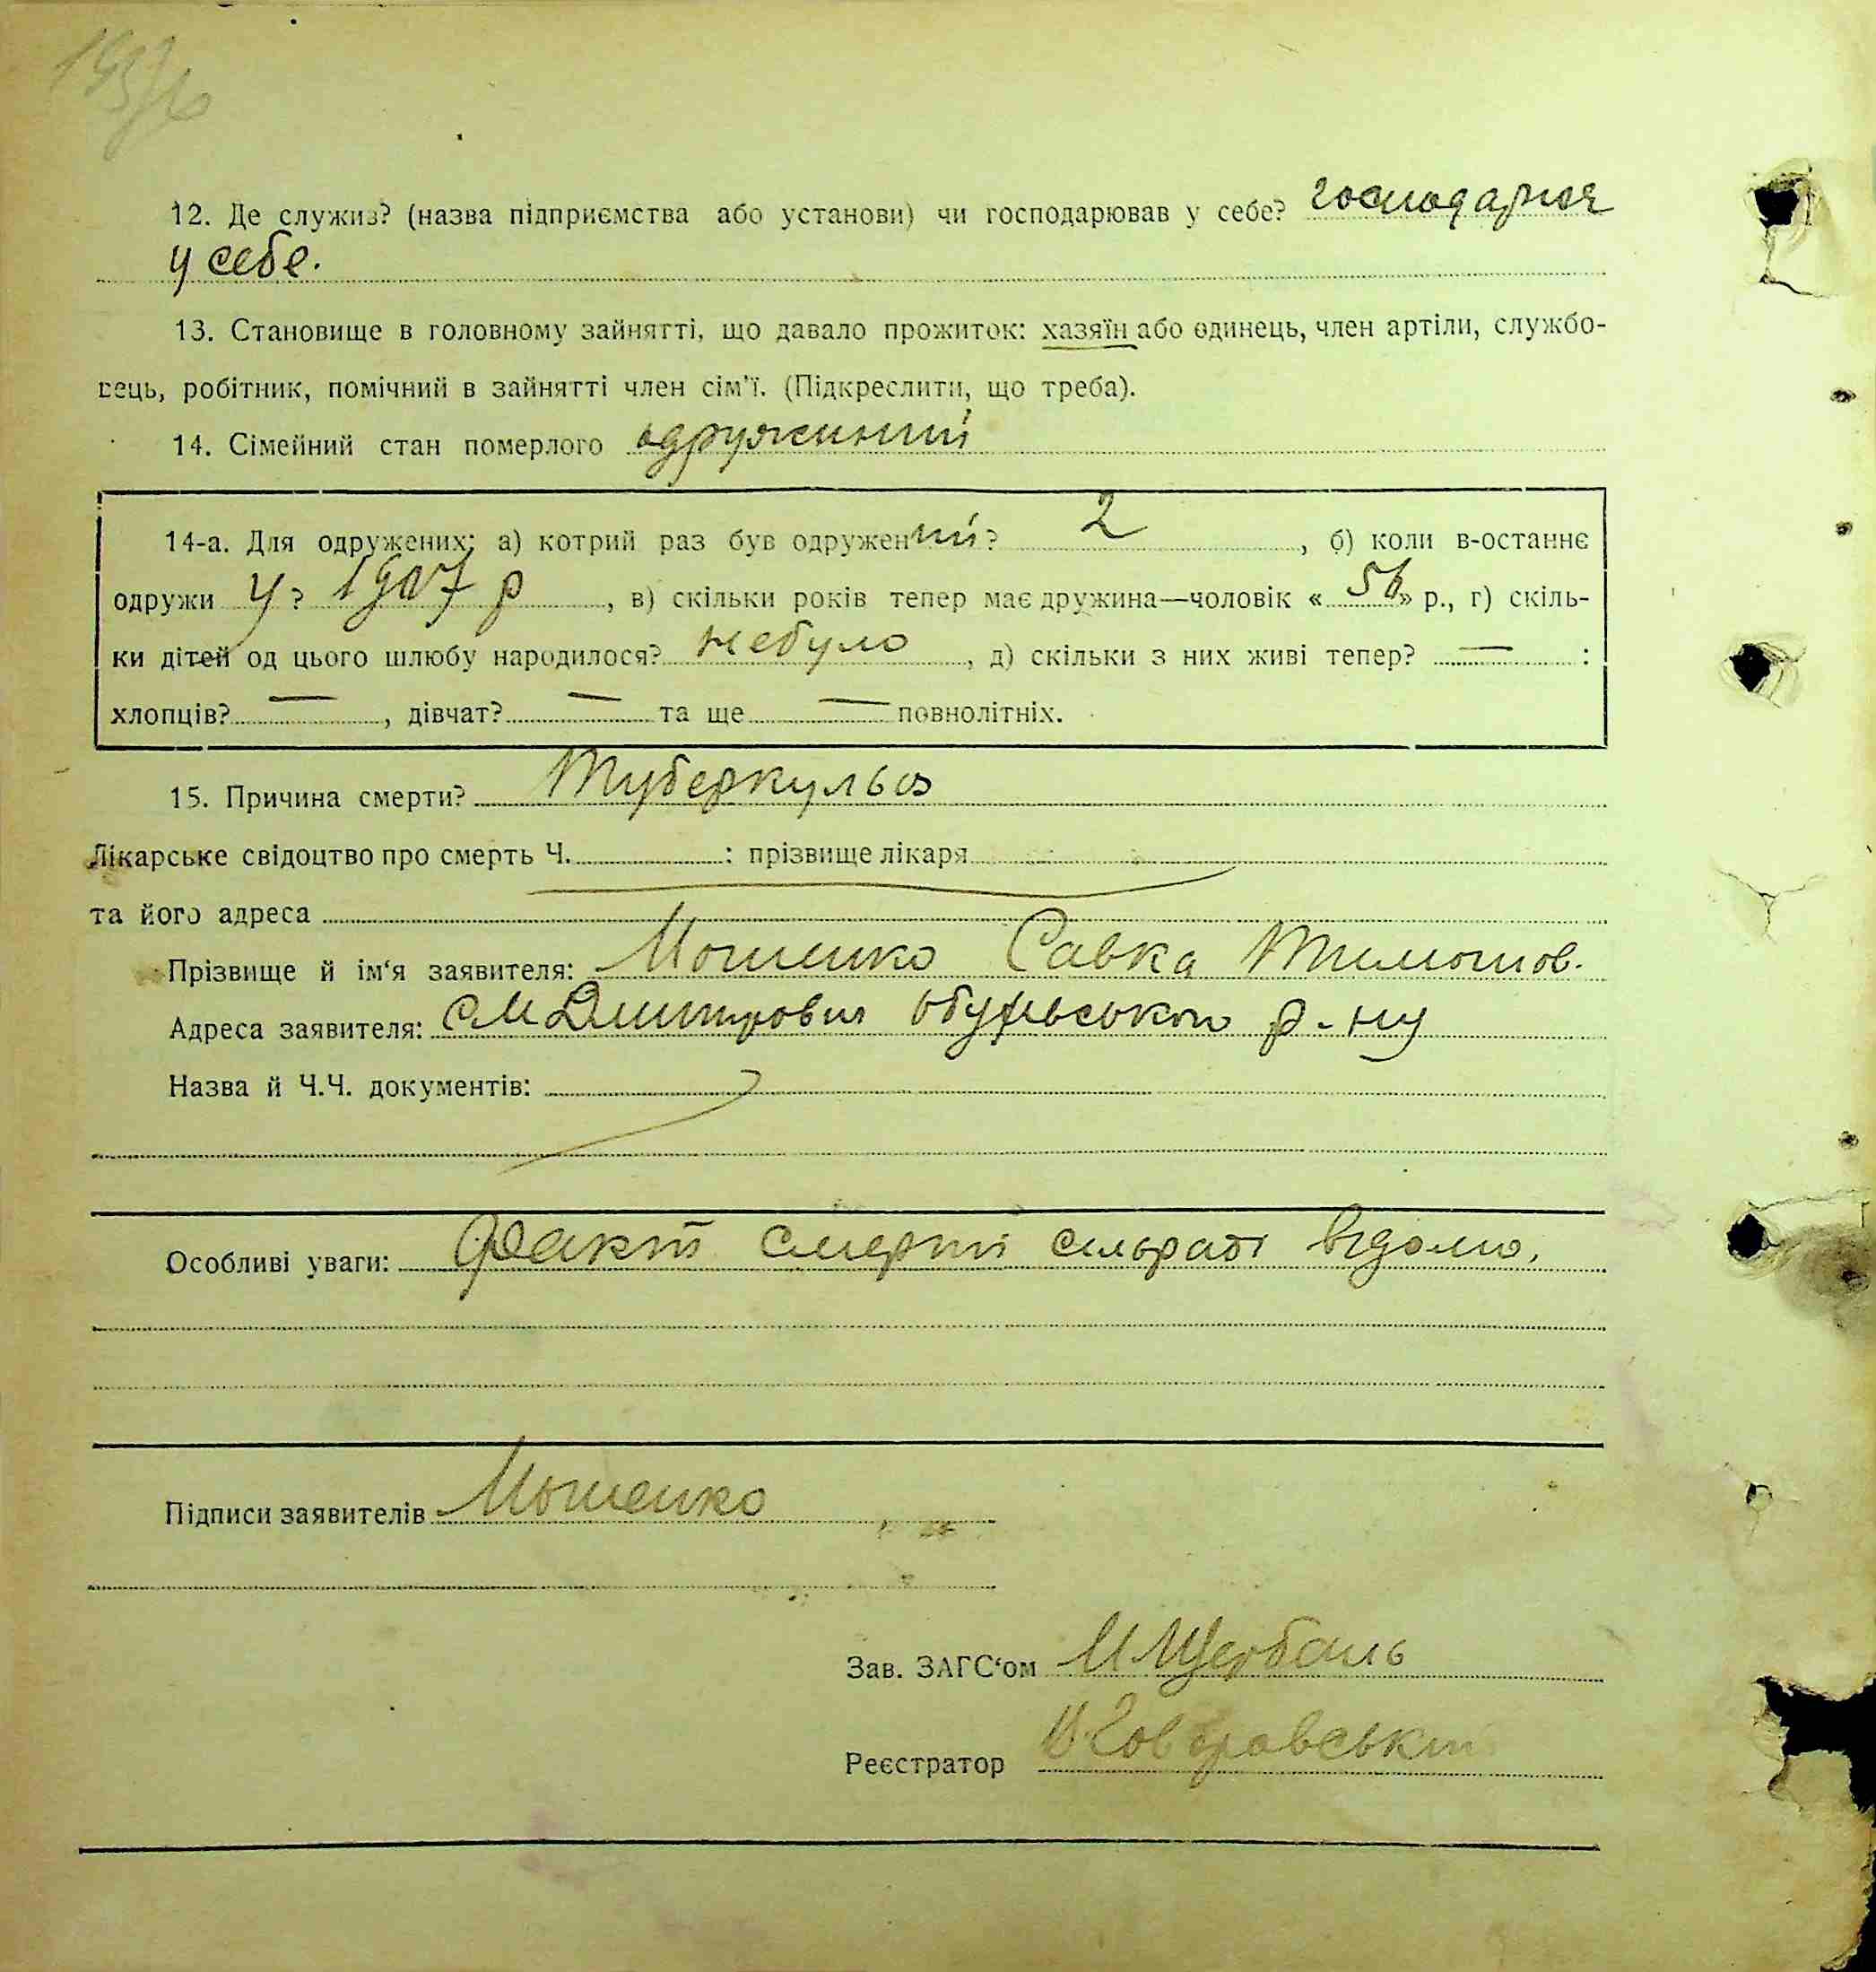 12. Де служив? (назва підприємства або установи) чи господарював у себе? господарюв
у себе.
13. Становище в головному зайнятті, що давало прожиток: хазяїн або одинець, член артіли, службо-
вець, робітник, помічний в зайнятті член сім'ї. (Підкреслити, що треба).
14. Сімейний стан померлого одружиний
14-а. Для одружених: а) котрий раз був одружений? 2, б) коли в-останнє
одружи у? 1907 р, в) скільки років тепер має дружина—чоловік «56» р., г) скіль-
ки дітей од цього шлюбу народилося? небуло, д) скільки з них живі тепер? — :
хлопців? —, дівчат? — та ще — повнолітніх.
15. Причина смерти? Туберкульоз
Лікарське свідоцтво про смерть Ч. : прізвище лікаря
та його адреса
Прізвище й ім'я заявителя: Мошенко Савка Тимошов.
Адреса заявителя: см Дмитровка Обухівського р-ну
Назва й Ч.Ч. документів:
Особливі уваги: Факт смерти сільраді відомо,
Підписи заявителів Мошенко
Зав. ЗАГС'ом М Щербань
Реєстратор